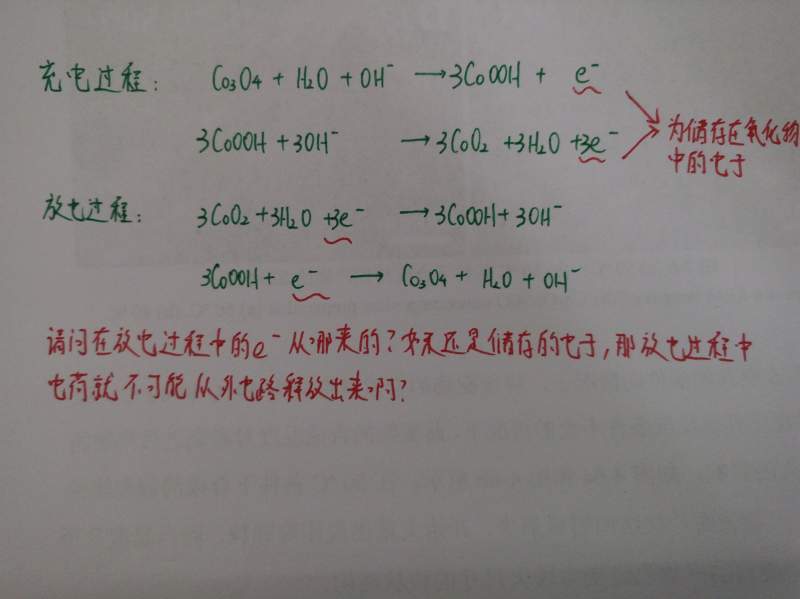 充电过程： Co₃O₄ + H₂O + OH⁻ → 3CoOOH + e⁻
3CoOOH + 3OH⁻ → 3CoO₂ + 3H₂O + 3e⁻
为储存在氧化物
中的电子
放电过程： 3CoO₂ + 3H₂O + 3e⁻ → 3CoOOH + 3OH⁻
3CoOOH + e⁻ → Co₃O₄ + H₂O + OH⁻
请问在放电过程中的e⁻从哪来的？如果还是储存的电子，那放电过程中
电荷就不可能从外电路释放出来啊？